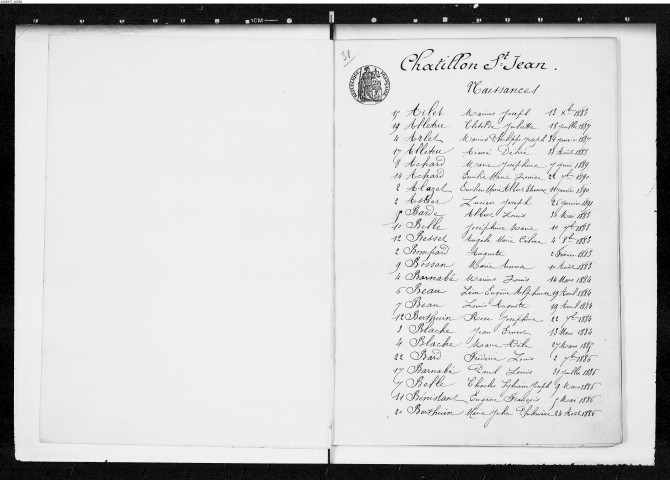 31
Chatillon St Jean.
Naissances
15 Arlet Marius Joseph 13 Xbre 1883
19 Clotilde Juliette 18 juillet 1887
4 Arlet Marius Philippe Joseph
17 Aimé Désiré Août 1888
8 Achard Marie Joséphine 7 juin 1889
14 Achard Emilie Marie Louise 1890
2 janvier 1890
2 Astier Lucien Joseph 26 janvier 1891
Barde Albert Louis 30 Mai 1883
10 Belle Joséphine Marie 11 7bre 1883
12 Besset Angèle Marie 4 8bre 1883
2 Bompard Auguste 2 Février 1883
9 Bossan Marie Anna 10 Août 1883
4 Barnabé Marius Louis 14 Mars 1884
6 Beau Léon Eugène Alphonse 19 Avril 1884
7 Beau Louis Auguste 19 Avril 1884
12 Berthuin Rose Joséphine 22 7bre 1884
3 Blache Jean Ernest 13 Mars 1884
4 Blache Marie 27 Mars 1885
22 Bard Frédéric Louis 2 7bre 1885
17 Barnabé Paul Louis 31 juillet 1885
7 Belle Charles Sylvain Joseph 9 Mars 1886
11 Bénistant Eugène François Mai 1886
20 Berthuin Marie Julie 28 Août 1886